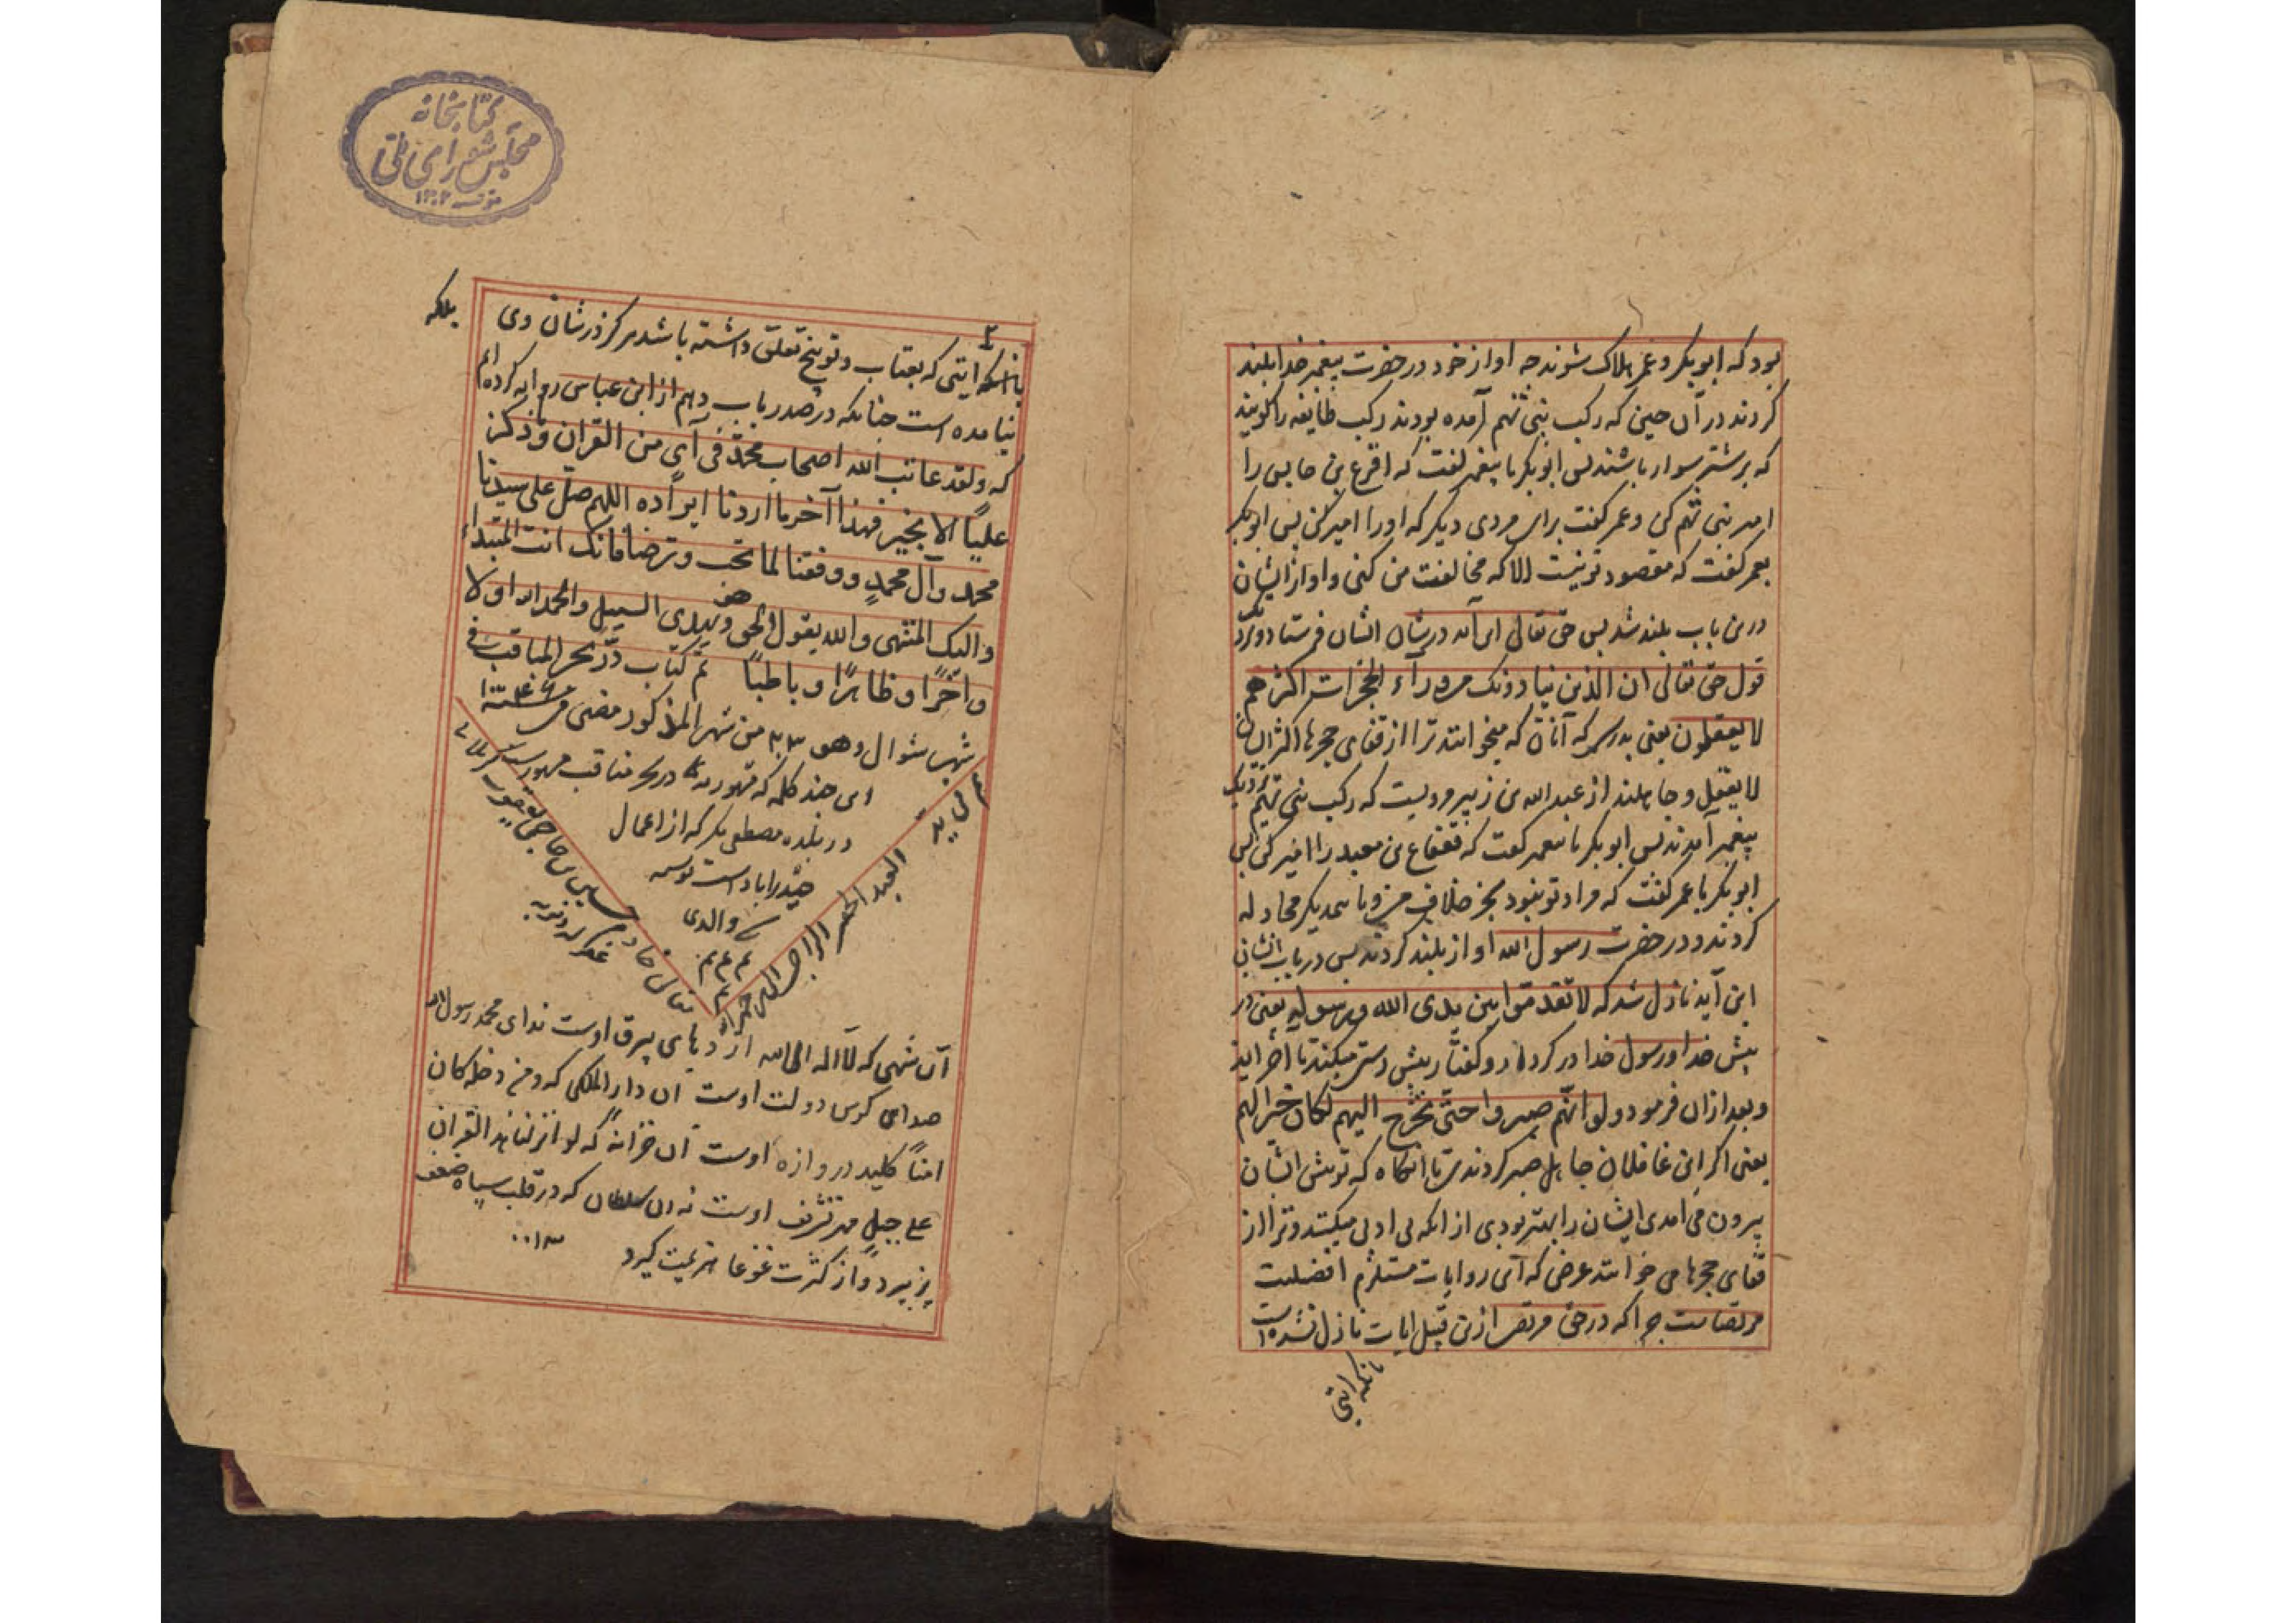 بود که ابوبکر و عمر هلاک شوند چه اواز خود در حضرت پیغمبر خدا بلند
کردند در آن حین که رکب بنی تمیم آمده بودند رکب طایفه را کویند
که بر شتر سوار باشند پس ابوبکر با پیغمبر گفت که اقرع بن حابس را
امیر بنی تمیم کن و عمر گفت برای مردی دیگر که او را امیر کن پس ابوبکر
بعمر گفت که مقصود تو نیست الا که مخالفت من کنی و اواز ایشان
درین باب بلند شد پس حق تعالی این آیه در شان ایشان فرستاد
قول حق تعالی ان الذین ینادونک من وراء الحجرات اکثرهم
لا یعقلون یعنی بدرستی که آنان که میخوانند ترا از قفای حجرها اکثر ایشان
لا یعقل و جاهلند از عبد الله بن زبیر مرویست که رکب بنی تمیم نزدیک
پیغمبر آمدند پس ابوبکر با پیغمبر گفت که قعقاع بن معبد را امیر کن پس
ابوبکر با عمر گفت که مراد تو نبود بجز خلاف من و با یکدیگر مجادله
کردند و در حضرت رسول الله اواز بلند کردند پس در باب ایشان
این آیه نازل شد که لا تقدموا بین یدی الله ورسوله یعنی در
پیش خدا و رسول خدا در کردار و کفتار پیش دستی میکنند تا اخر ایه
و بعد ازان فرمود ولو انهم صبروا حتی تخرج الیهم لکان خیرا لهم
یعنی اکر این غافلان جاهل صبر کردندی تا انکاه که تو پیش ایشان
بیرون می امدی ایشان را بهتر بودی از انکه بی ادبی میکنند و ترا از
قفای حجرها می خوانند غرض که این روایات مستلزم افضلیت
مرتضاست چرا که در حق مرتضی ازین قبیل ایات نازل نشده است
بانکه ایتی
کتابخانه
مجلس شورای ملی
۱۳۰۲
بلکه
بانکه ایتی که بعتاب و توبیخ تعلق داشته باشد هرکز در شان وی
نیامده است چنانکه در صدر باب دهم از ابن عباس روایه کرده ایم
که ولقد عاتب الله اصحاب محمد فی آی من القران وما ذکر
علیا الا بخیر فهذا آخر ما اردنا ایراده اللهم صل علی سیدنا
محمد وآل محمد ووفقنا لما تحب وترضا فانک انت المبتداء
والیک المنتهی والله یقول الحق وهو یهدی السبیل والحمد لله اولا
واخرا وظاهرا وباطنا تم کتاب در بحر المناقب فی
شهر شوال وهو ۲۳ من شهر المذکور مضی من سنة
این چند کلمه که در بحر مناقب
در بلده مصطفی نکر که از اعمال
حیدراباد است
والدی
العبد
الراجی الی
حاجی
آن شهی که لا اله الا الله اژدهای بیرق اوست ندای محمد رسول الله
صدای کوس دولت اوست ان دار الملکی که ومن دخله کان
امنا کلید دروازه اوست آن خزانه که لو انزلنا هذا القران
علی جبل مهر تشریف اوست نه ان سلطان که در قلب سپاه ضعف
پذیرد و از کثرت غوغا هزیمت کیرد